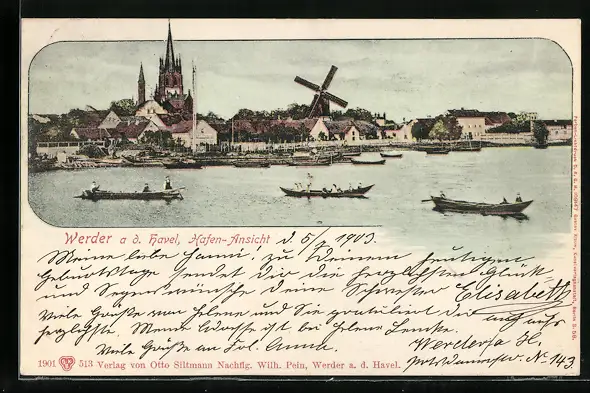 Werder a. d. Havel, Hafen-Ansicht d. 5/7 1903.
Meine liebe Hanni! zu Deinem heutigen
Geburtstage sendet Dir die herzlichsten Glück-
und Segenswünsche Deine Schwester Elisabeth
Viele Grüße von Helene und Sie gratuliert Dir auch aufs
herzlichste. Meine Adresse ist bei Helene
Viele Grüße an Frl. Anna. Werder a/H.
No. 143.
1901 513 Verlag von Otto Siltmann Nachflg. Wilh. Pein, Werder a. d. Havel.